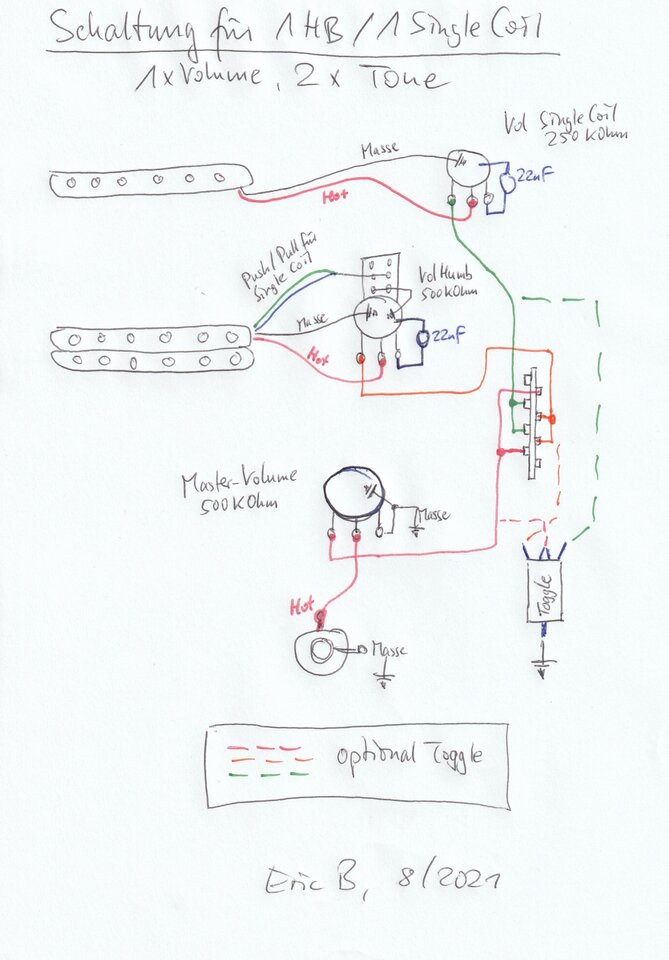 Schaltung für 1 HB / 1 Single Coil
1x Volume, 2x Tone
Vol Single Coil
250 KOhm
Masse
22nF
Hot
Push/Pull für
Single Coil
Vol Humb
500 KOhm
Masse
22nF
Hot
Master-Volume
500 KOhm
Masse
Toggle
Hot
Masse
optional Toggle
Eric B, 8/2021